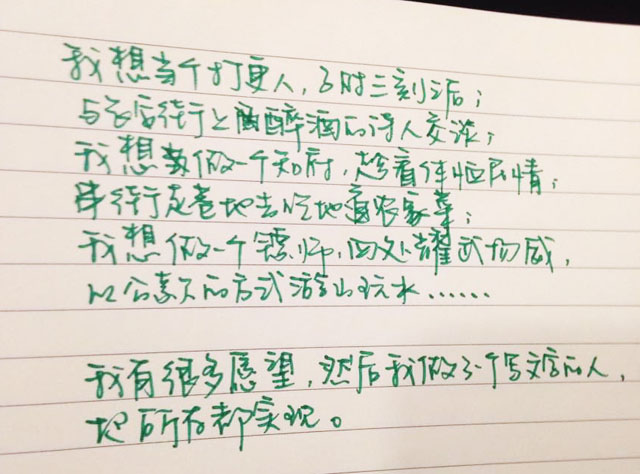 我想当个打更人，子时三刻之后；
与长街行上因醉酒的诗人交谈；
我想做一个知府，趁着体恤民情；
串街走巷地去吃地道农家菜；
我想做一个镖师，四处耀武扬威，
以公款的方式游山玩水……
我有很多愿望，然后我做了一个写文字的人，
把所有都实现。